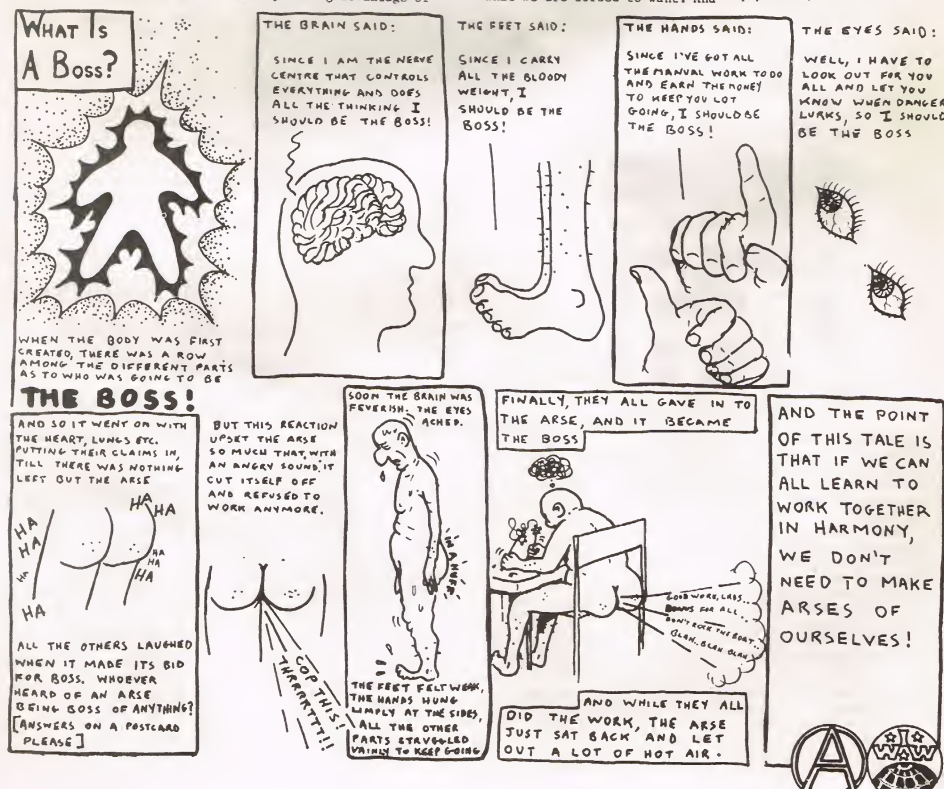 what we are forced to want. And
WHAT IS
A BOSS?
WHEN THE BODY WAS FIRST
CREATED, THERE WAS A ROW
AMONG THE DIFFERENT PARTS
AS TO WHO WAS GOING TO BE
THE BOSS!
THE BRAIN SAID:
SINCE I AM THE NERVE
CENTRE THAT CONTROLS
EVERYTHING AND DOES
ALL THE THINKING I
SHOULD BE THE BOSS!
THE FEET SAID:
SINCE I CARRY
ALL THE BLOODY
WEIGHT, I
SHOULD BE THE
BOSS!
THE HANDS SAID:
SINCE I'VE GOT ALL
THE MANUAL WORK TO DO
AND EARN THE MONEY
TO KEEP YOU LOT
GOING, I SHOULD BE
THE BOSS!
THE EYES SAID:
WELL, I HAVE TO
LOOK OUT FOR YOU
ALL AND LET YOU
KNOW WHEN DANGER
LURKS, SO I SHOULD
BE THE BOSS
AND SO IT WENT ON WITH
THE HEART, LUNGS ETC.
PUTTING THEIR CLAIMS IN,
TILL THERE WAS NOTHING
LEFT BUT THE ARSE
HA
HA
HA
HA
HA
HA
HA
HA
HA
ALL THE OTHERS LAUGHED
WHEN IT MADE ITS BID
FOR BOSS. WHOEVER
HEARD OF AN ARSE
BEING BOSS OF ANYTHING?
[ANSWERS ON A POSTCARD
PLEASE]
BUT THIS REACTION
UPSET THE ARSE
SO MUCH THAT, WITH
AN ANGRY SOUND, IT
CUT ITSELF OFF
AND REFUSED TO
WORK ANYMORE.
COP THIS!
THRRRKTTT!!
SOON THE BRAIN WAS
FEVERISH. THE EYES
ACHED.
IN A HUFF
THE FEET FELT WEAK,
THE HANDS HUNG
LIMPLY AT THE SIDES,
ALL THE OTHER
PARTS STRUGGLED
VAINLY TO KEEP GOING
FINALLY, THEY ALL GAVE IN TO
THE ARSE, AND IT BECAME
THE BOSS
GOOD WORK, LADS..
BONUS FOR ALL
DON'T ROCK THE BOAT..
BLAH.. BLAH BLAH
AND WHILE THEY ALL
DID THE WORK, THE ARSE
JUST SAT BACK, AND LET
OUT A LOT OF HOT AIR.
AND THE POINT
OF THIS TALE IS
THAT IF WE CAN
ALL LEARN TO
WORK TOGETHER
IN HARMONY,
WE DON'T
NEED TO MAKE
ARSES OF
OURSELVES!
A
IWW